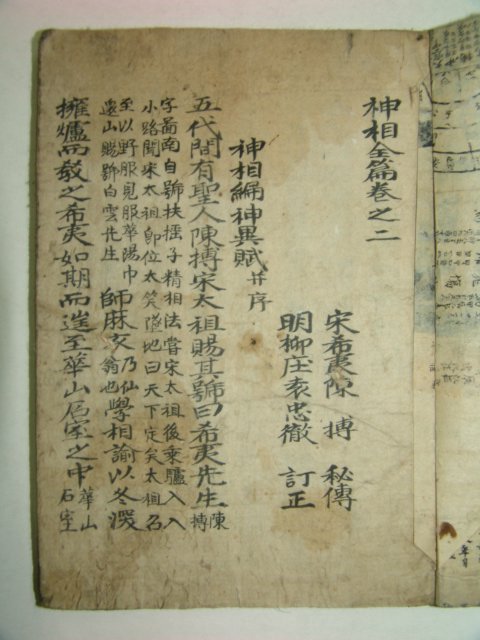 神相全篇卷之二
宋希夷陳 摶 秘傳
明柳庄袁忠徹 訂正
神相編神異賦 并序
五代間有聖人陳摶宋太祖賜其號曰希夷先生 陳摶
字啚南自號扶摇子精相法嘗宋太祖後乘驢入
小路聞宋太祖即位大笑墜地曰天下定矣太祖召
至以野服見服華陽巾
還山賜號白雲先生
師麻衣 乃仙翁也 學相諭以冬深
擁爐而敎之希夷如期而進至華山石室之中 華山石室